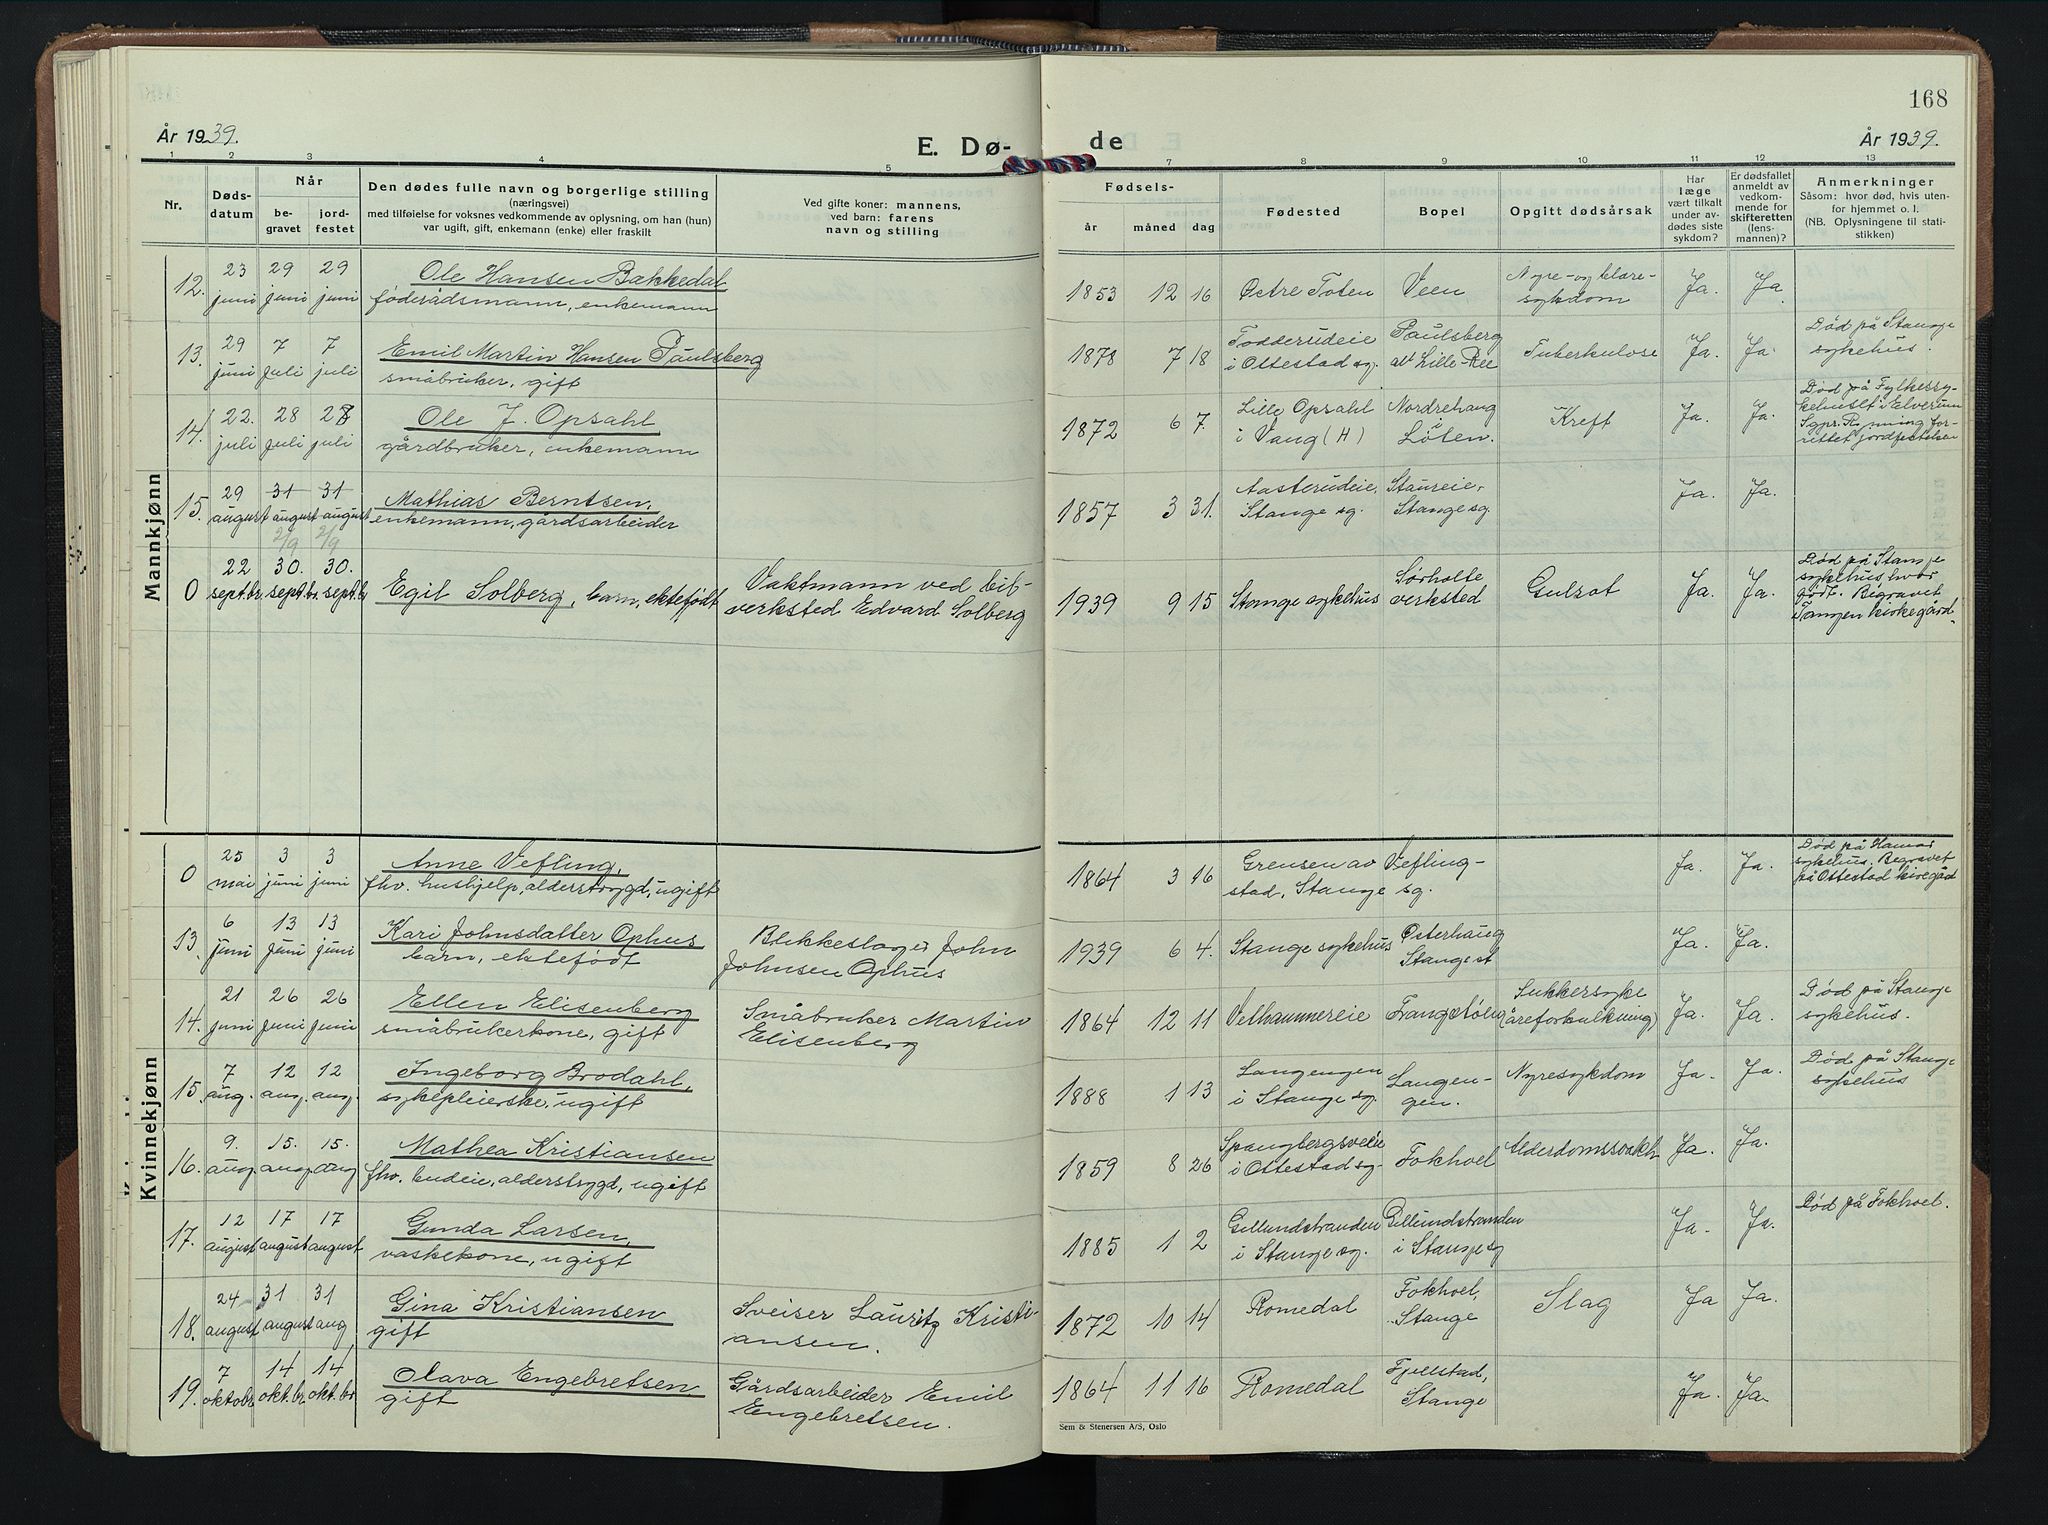 168
År 1939.
E. Dø-
de
År 1939.
1 2 3 4 5 7 8 9 10 11 12 13
Nr.
Døds-
datum
Når
be-
gravet
jord-
festet
Den dødes fulle navn og borgerlige stilling
(næringsvei)
med tilføielse for voksnes vedkommende av oplysning, om han (hun)
var ugift, gift, enkemann (enke) eller fraskilt
Ved gifte koner: mannens,
ved barn: farens
navn og stilling
Fødsels-
år måned dag
Fødested
Bopel
Opgitt dødsårsak
Har
læge
vært tilkalt
under av-
dødes siste
sykdom?
Er dødsfallet
anmeldt av
vedkom-
mende for
skifteretten
(lens-
mannen)?
Anmerkninger
Såsom: hvor død, hvis uten-
for hjemmet o. l.
(NB. Oplysningene til stati-
stikken)
Mannkjønn
12. 23 juni 29 juni 29 juni
Ole Hansen Bakkedal
føderådsmann, enkemann
1853 12 16 Østre Toten Veen
Nyre- og blære-
sykdom
Ja. Ja
13. 29 juni 7 juli 7 juli
Emil Martin Hansen Paulsberg
småbruker, gift
1878 7 18
Fodderudeie
i Ottestad sg.
Paulsberg
alt Lille Ree
Tuberkulose Ja. Ja.
Død på Stange
sykehus.
14. 22. juli 28 juli 28 juli
Ole J. Opsahl
gårdbruker, enkemann
1872 6 7.
Lille Opsahl
i Vang (H)
Nordrehaug
Løten.
Kreft Ja. Ja.
Død på Fylkessy-
kehuset i Elverum
Sgpr. R. ning for-
rettet jordfestelsen
15. 29 august 31 august 31 august
2/9 2/9
Mathias Berntsen,
enkemann, gårdsarbeider
1857 3 31.
Aasterudeie,
Stange sg.
Staureie,
Stange sg.
Ja. Ja.
0 22 septbr. 30. septbr. 30. septbr.
Egil Solberg, barn, ektefødt
Vaktmann ved bil-
verksted Edvard Solberg
1939 9 15 Stange sykehus
Sørholte
verksted
Gulsot Ja. Ja.
Død på Stange
sykehus, hvor
født. Begravet
Tangen kirkegård.
Kvinnekjønn
0 25 mai 3 juni 3 juni
Anne Vefling,
fhv. hushjelp, alderstrygd, ugift
1864 3 16
Grensen av Vefling-
stad, Stange sg.
Ja. Ja.
Død på Hamar
sykehus. Begravet
på Ottestad kiregård
13. 6 juni 13 juni 13 juni
Kari Johnsdatter Ophus
barn, ektefødt
Blikkeslager John
Johnsen Ophus
1939 6 4. Stange sykehus
Østerhaug
Stange st
Ja. Ja.
14. 21 juni 26 juni 26 juni
Ellen Elisenberg
småbrukerkone, gift
Småbruker Martin
Elisenberg
1864 12 11 Velhammereie Frangstølen
Sukkersyke
(åreforkalkning)
Ja. Ja.
Død på Stange
sykehus.
15. 7 aug. 12 aug. 12 aug.
Ingeborg Brodahl,
sykepleierske, ugift
1888 1 13
Langengen
i Stange sg.
Langen-
gen.
Nyresykdom Ja. Ja.
Død på Stange
sykehus
16. 9. aug. 15. aug. 15. aug
Mathea Kristiansen
fhv. budeie, alderstrygd, ugift
1859 8 26
Spangbergsveie
i Ottestad sg.
Fokhoel Alderdomssvakh. Ja. Ja.
17. 12 august 17 august 17 august
Gunda Larsen,
vaskekone, ugift
1885 1 2
Gillundstranden
i Stange sg.
Gillundstranden
i Stange sg
Ja. Ja.
Død på Fokhoel.
18. 24 august 31 august 31 aug
Gina Kristiansen
gift
Sveiser Lauritz Kristi-
ansen.
1872 10 14 Romedal
Fokhoel,
Stange
Slag Ja Ja.
19. 7 oktobr 14 okt.br. 14 okt.br
Olava Engebretsen
gift
Gårdsarbeider Emil
Engebretsen.
1864 11 16 Romedal
Fjellstad,
Stange
Ja. Ja.
Sem & Stenersen A/S, Oslo